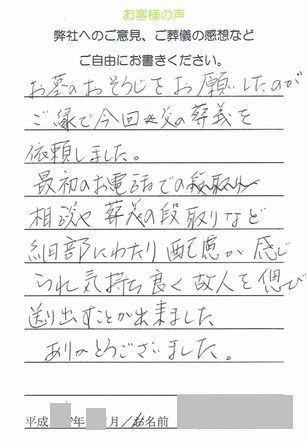 お客様の声
弊社へのご意見、ご葬儀の感想など
ご自由にお書きください。
お墓のおそうじをお願いしたのが
ご縁で今回父の葬義を
依頼しました。
最初のお電話での
相談や葬義の段取りなど
細部にわたり配慮が感じ
られ気持ち良く故人を偲び
送り出すことが出来ました
ありがとうございました。
平成 年 月 お名前